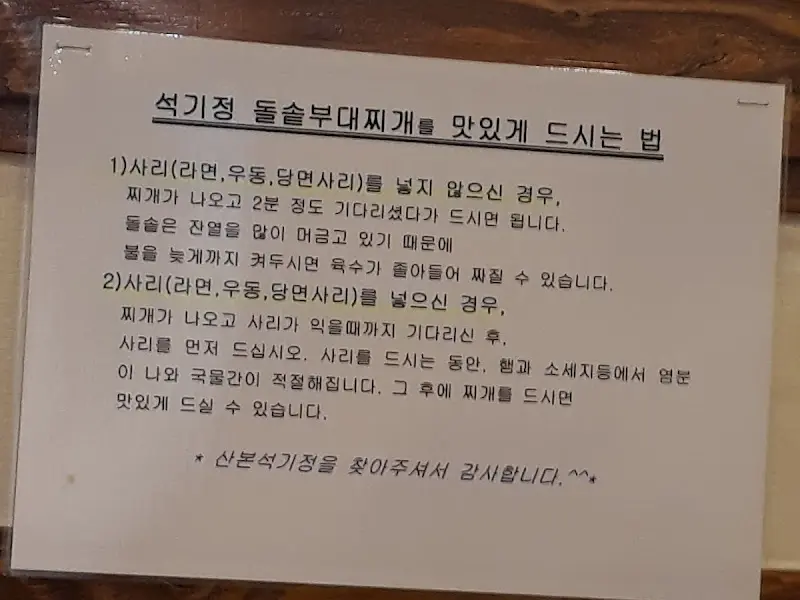 석기정 돌솥부대찌개를 맛있게 드시는 법
1)사리(라면,우동,당면사리)를 넣지 않으신 경우,
찌개가 나오고 2분 정도 기다리셨다가 드시면 됩니다.
돌솥은 잔열을 많이 머금고 있기 때문에
불을 늦게까지 켜두시면 육수가 졸아들어 짜질 수 있습니다.
2)사리(라면,우동,당면사리)를 넣으신 경우,
찌개가 나오고 사리가 익을때까지 기다리신 후,
사리를 먼저 드십시오. 사리를 드시는 동안, 햄과 소세지등에서 염분
이 나와 국물간이 적절해집니다. 그 후에 찌개를 드시면
맛있게 드실 수 있습니다.
* 산본석기정을 찾아주셔서 감사합니다.^^*